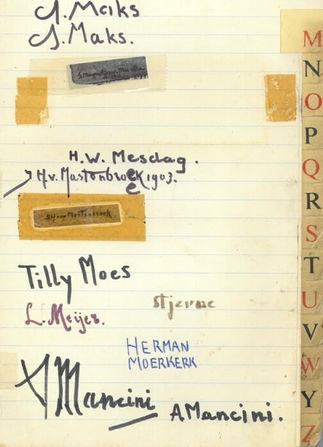 J. Maks
J. Maks.
H.W. Mesdag.
H.v. Mastenbroek 1903.
Tilly Moes
Stjerne
L. Meijer.
HERMAN
MOERKERK
Mancini
AMancini.
M
N
O
P
Q
R
S
T
U
V
W
Y
Z